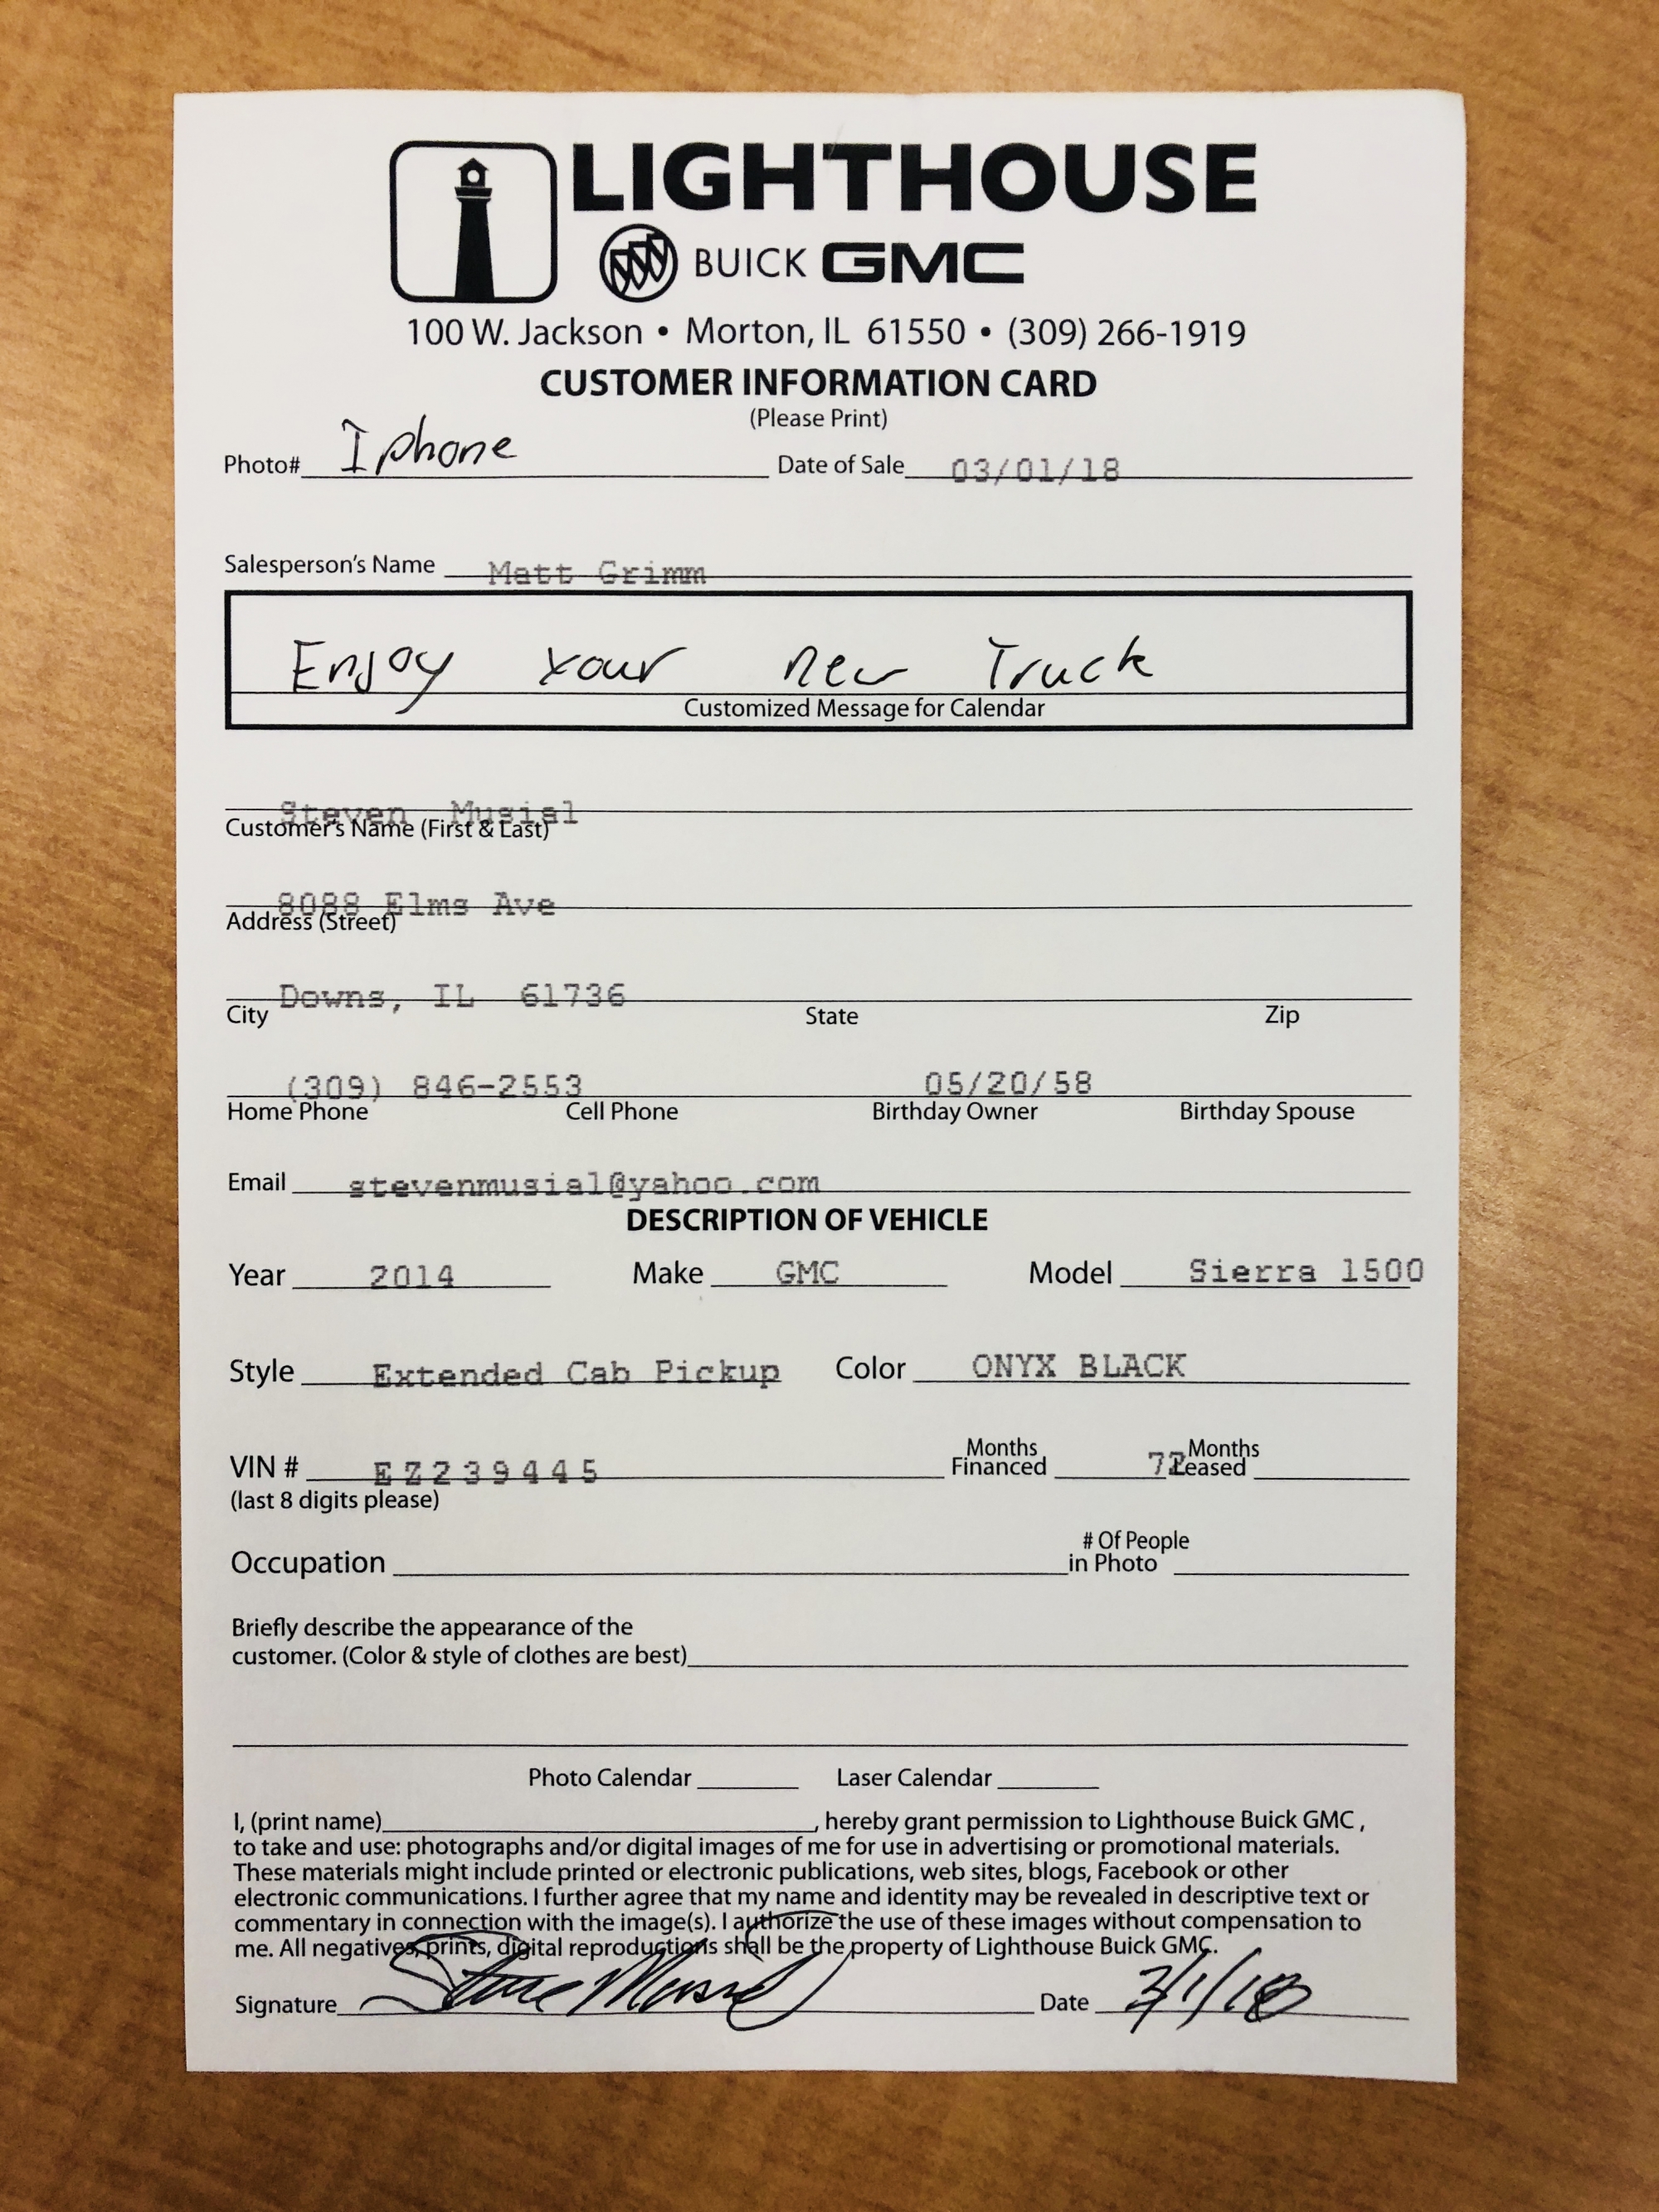 LIGHTHOUSE
BUICK GMC
100 W. Jackson • Morton, IL 61550 • (309) 266-1919
CUSTOMER INFORMATION CARD
(Please Print)
Photo# Iphone Date of Sale 03/01/18
Salesperson's Name Matt Grimm
Enjoy your new Truck
Customized Message for Calendar
Steven Musial
Customer's Name (First & Last)
8088 Elms Ave
Address (Street)
Downs, IL 61736
City State Zip
(309) 846-2553 05/20/58
Home Phone Cell Phone Birthday Owner Birthday Spouse
Email stevenmusial@yahoo.com
DESCRIPTION OF VEHICLE
Year 2014 Make GMC Model Sierra 1500
Style Extended Cab Pickup Color ONYX BLACK
VIN # EZ239445 Months Financed 72 Months Leased
(last 8 digits please)
Occupation # Of People in Photo
Briefly describe the appearance of the
customer. (Color & style of clothes are best)
Photo Calendar Laser Calendar
I, (print name), hereby grant permission to Lighthouse Buick GMC ,
to take and use: photographs and/or digital images of me for use in advertising or promotional materials.
These materials might include printed or electronic publications, web sites, blogs, Facebook or other
electronic communications. I further agree that my name and identity may be revealed in descriptive text or
commentary in connection with the image(s). I authorize the use of these images without compensation to
me. All negatives, prints, digital reproductions shall be the property of Lighthouse Buick GMC.
Signature Steve Musial Date 3/1/18